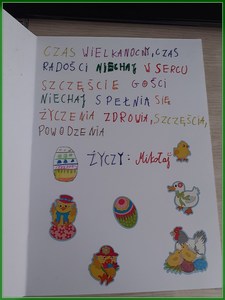 CZAS WIELKANOCNY, CZAS
RADOŚCI NIECHAJ W SERCU
SZCZĘŚCIE GOŚCI
NIECHAJ SPEŁNIA SIĘ
ŻYCZENIA ZDROWIA, SZCZĘŚCIA,
POWODZENIA
ŻYCZY: Mikołaj